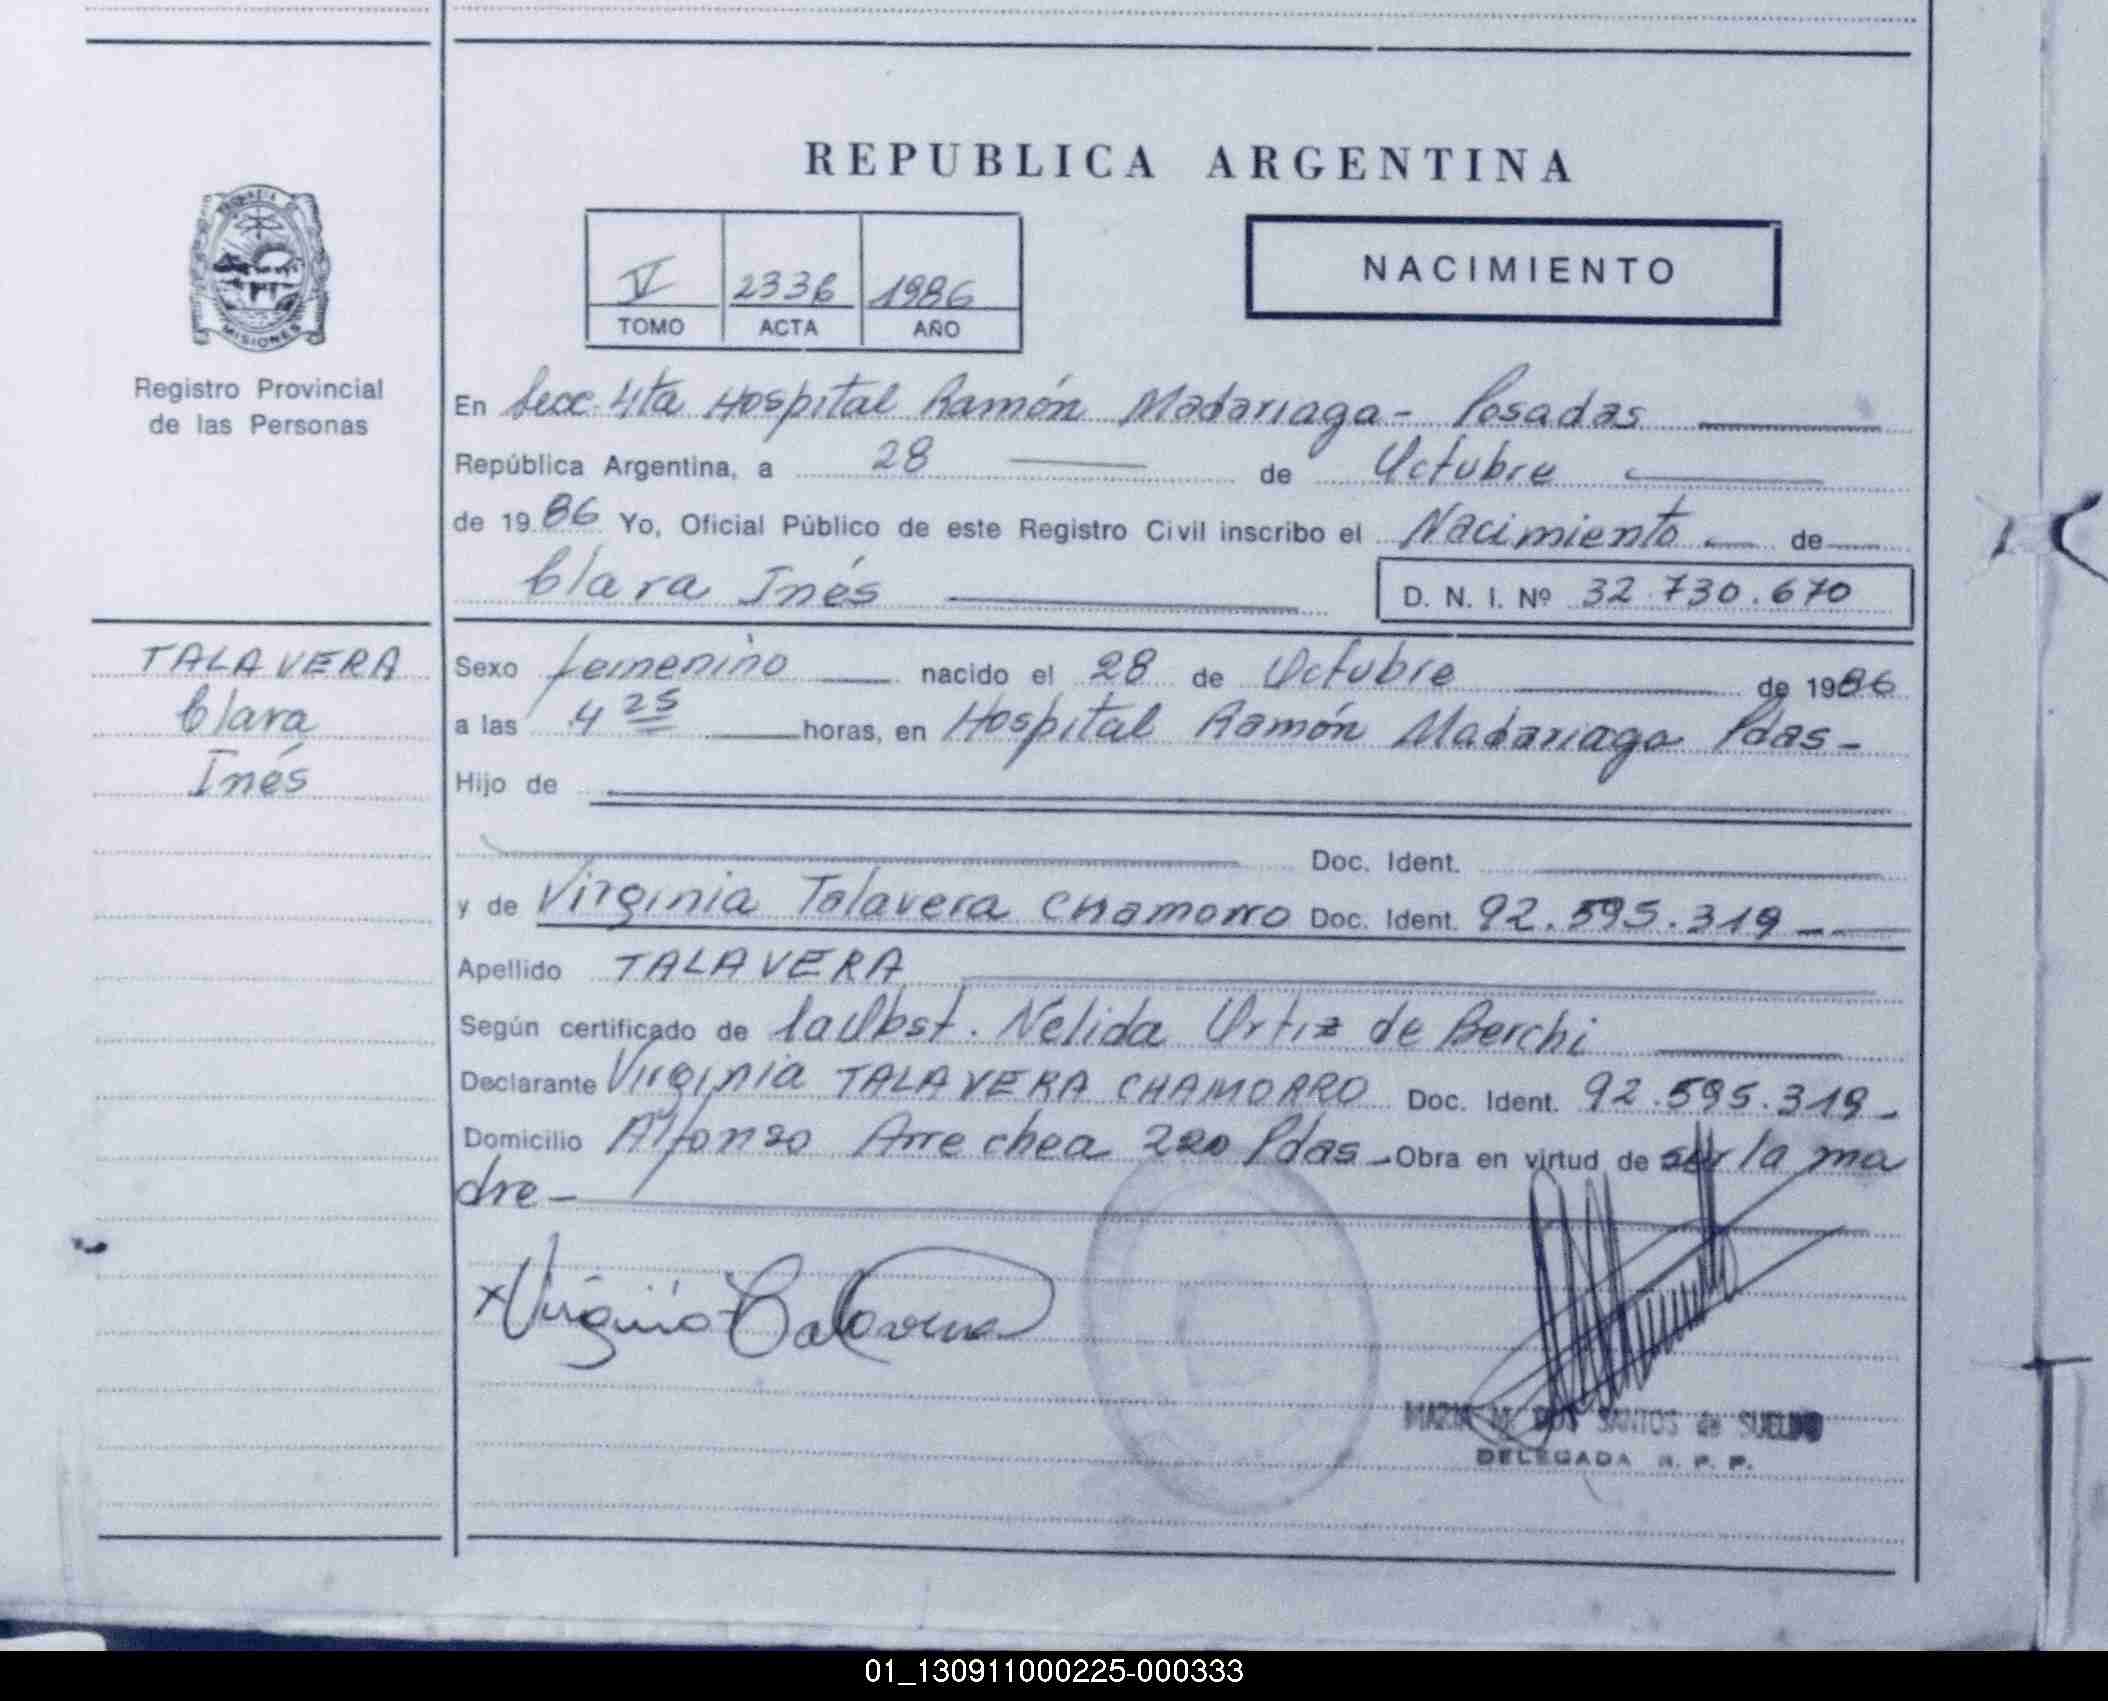 REPUBLICA ARGENTINA
V 2336 1986
TOMO ACTA AÑO
NACIMIENTO
MISIONES
Registro Provincial
de las Personas
En Secc. 4ta Hospital Ramón Madariaga - Posadas
República Argentina, a 28 de Octubre
de 1986 Yo, Oficial Público de este Registro Civil inscribo el Nacimiento de
Clara Inés D. N. I. Nº 32.730.670
TALAVERA
Clara
Inés
Sexo femenino nacido el 28 de Octubre de 1986
a las 4 25 horas, en Hospital Ramón Madariaga Pdas -
Hijo de
Doc. Ident.
y de Virginia Talavera Chamorro Doc. Ident. 92.595.319 -
Apellido TALAVERA
Según certificado de la Obst. Nélida Ortiz de Berchi
Declarante Virginia TALAVERA CHAMORRO Doc. Ident. 92.595.319 -
Domicilio Alfonso Arrechea 220 Pdas - Obra en virtud de ser la ma
dre -
x Virginia Talavera
MARIA M. DOS SANTOS de
DELEGADA R. P. P.
01_130911000225-000333